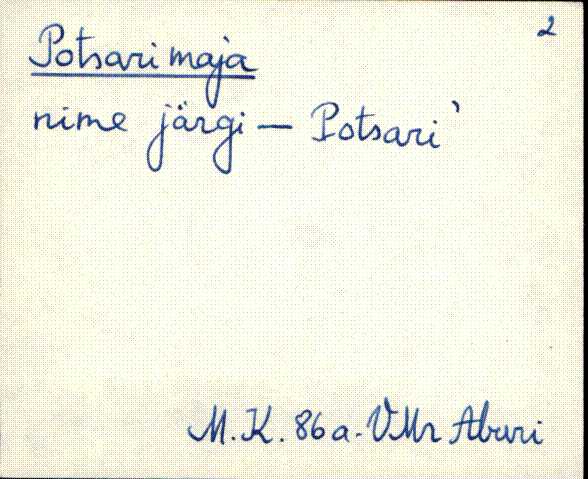 2
Potsari maja
nime järgi — Potsari'
M.K. 86 a. VMr Aburi